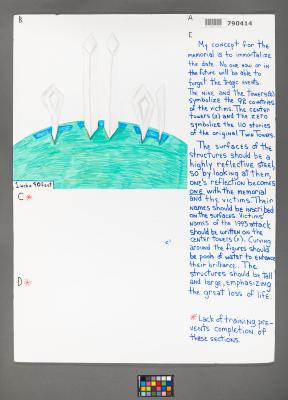 B
1 inch = 90 feet
C *
D *
A
790414
E
My concept for the
memorial is to immortalize
the date. No one now or in
the future will be able to
forget the tragic events.
The nine and the towers(11)
symbolize the 92 countries
of the victims. The center
Towers (11) and the zero
symbolize the 110 stories
of the original Twin Towers.
The surfaces of the
structures should be a
highly reflective steel,
so by looking at them,
one's reflection becomes
one with the memorial
and the victims. Their
names should be inscribed
on the surfaces. Victims'
names of the 1993 attack
should be written on the
center towers (11). Curving
around the figures should
be pools of water to enhance
their brilliance. The
structures should be tall
and large, emphasizing
the great loss of life.
* Lack of training pre-
vents completion of
these sections.